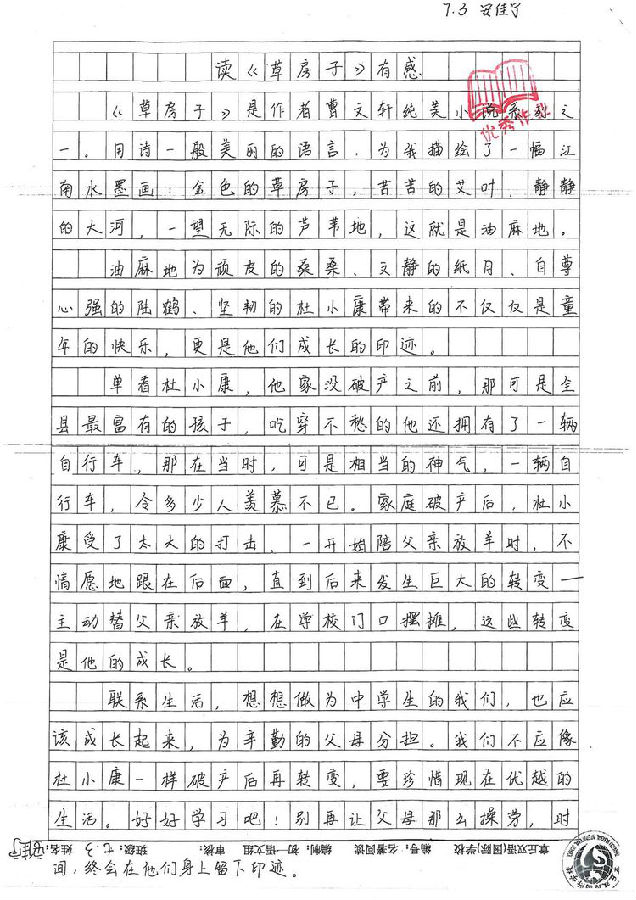 7.3 安佳了
读《草房子》有感
《草房子》是作者曹文轩纯美小说系列之
优秀作业
一，用诗一般美丽的语言，为我描绘了一幅江
南水墨画：金色的草房子，苦苦的艾叶，静静
的大河，一望无际的芦苇地，这就是油麻地。
油麻地为顽皮的桑桑、文静的纸月、自尊
心强的陆鹤、坚韧的杜小康带来的不仅仅是童
年的快乐，更是他们成长的印迹。
单看杜小康，他家没破产之前，那可是全
县最富有的孩子，吃穿不愁的他还拥有了一辆
自行车，那在当时，可是相当的神气，一辆自
行车，令多少人羡慕不已。家庭破产后，杜小
康受了太大的打击，一开始陪父亲放羊时，不
情愿地跟在后面，直到后来发生巨大的转变一
主动替父亲放羊，在学校门口摆摊，这些转变
是他的成长。
联系生活，想想做为中学生的我们，也应
该成长起来，为辛勤的父母分担。我们不应像
杜小康一样破产后再转变，要珍惜现在优越的
生活。好好学习吧！别再让父母那么操劳，时
章丘双语国际学校 编号：名著阅读 编制：初一语文组 审核： 班级：七3 姓名：
间，终会在他们身上留下印迹。